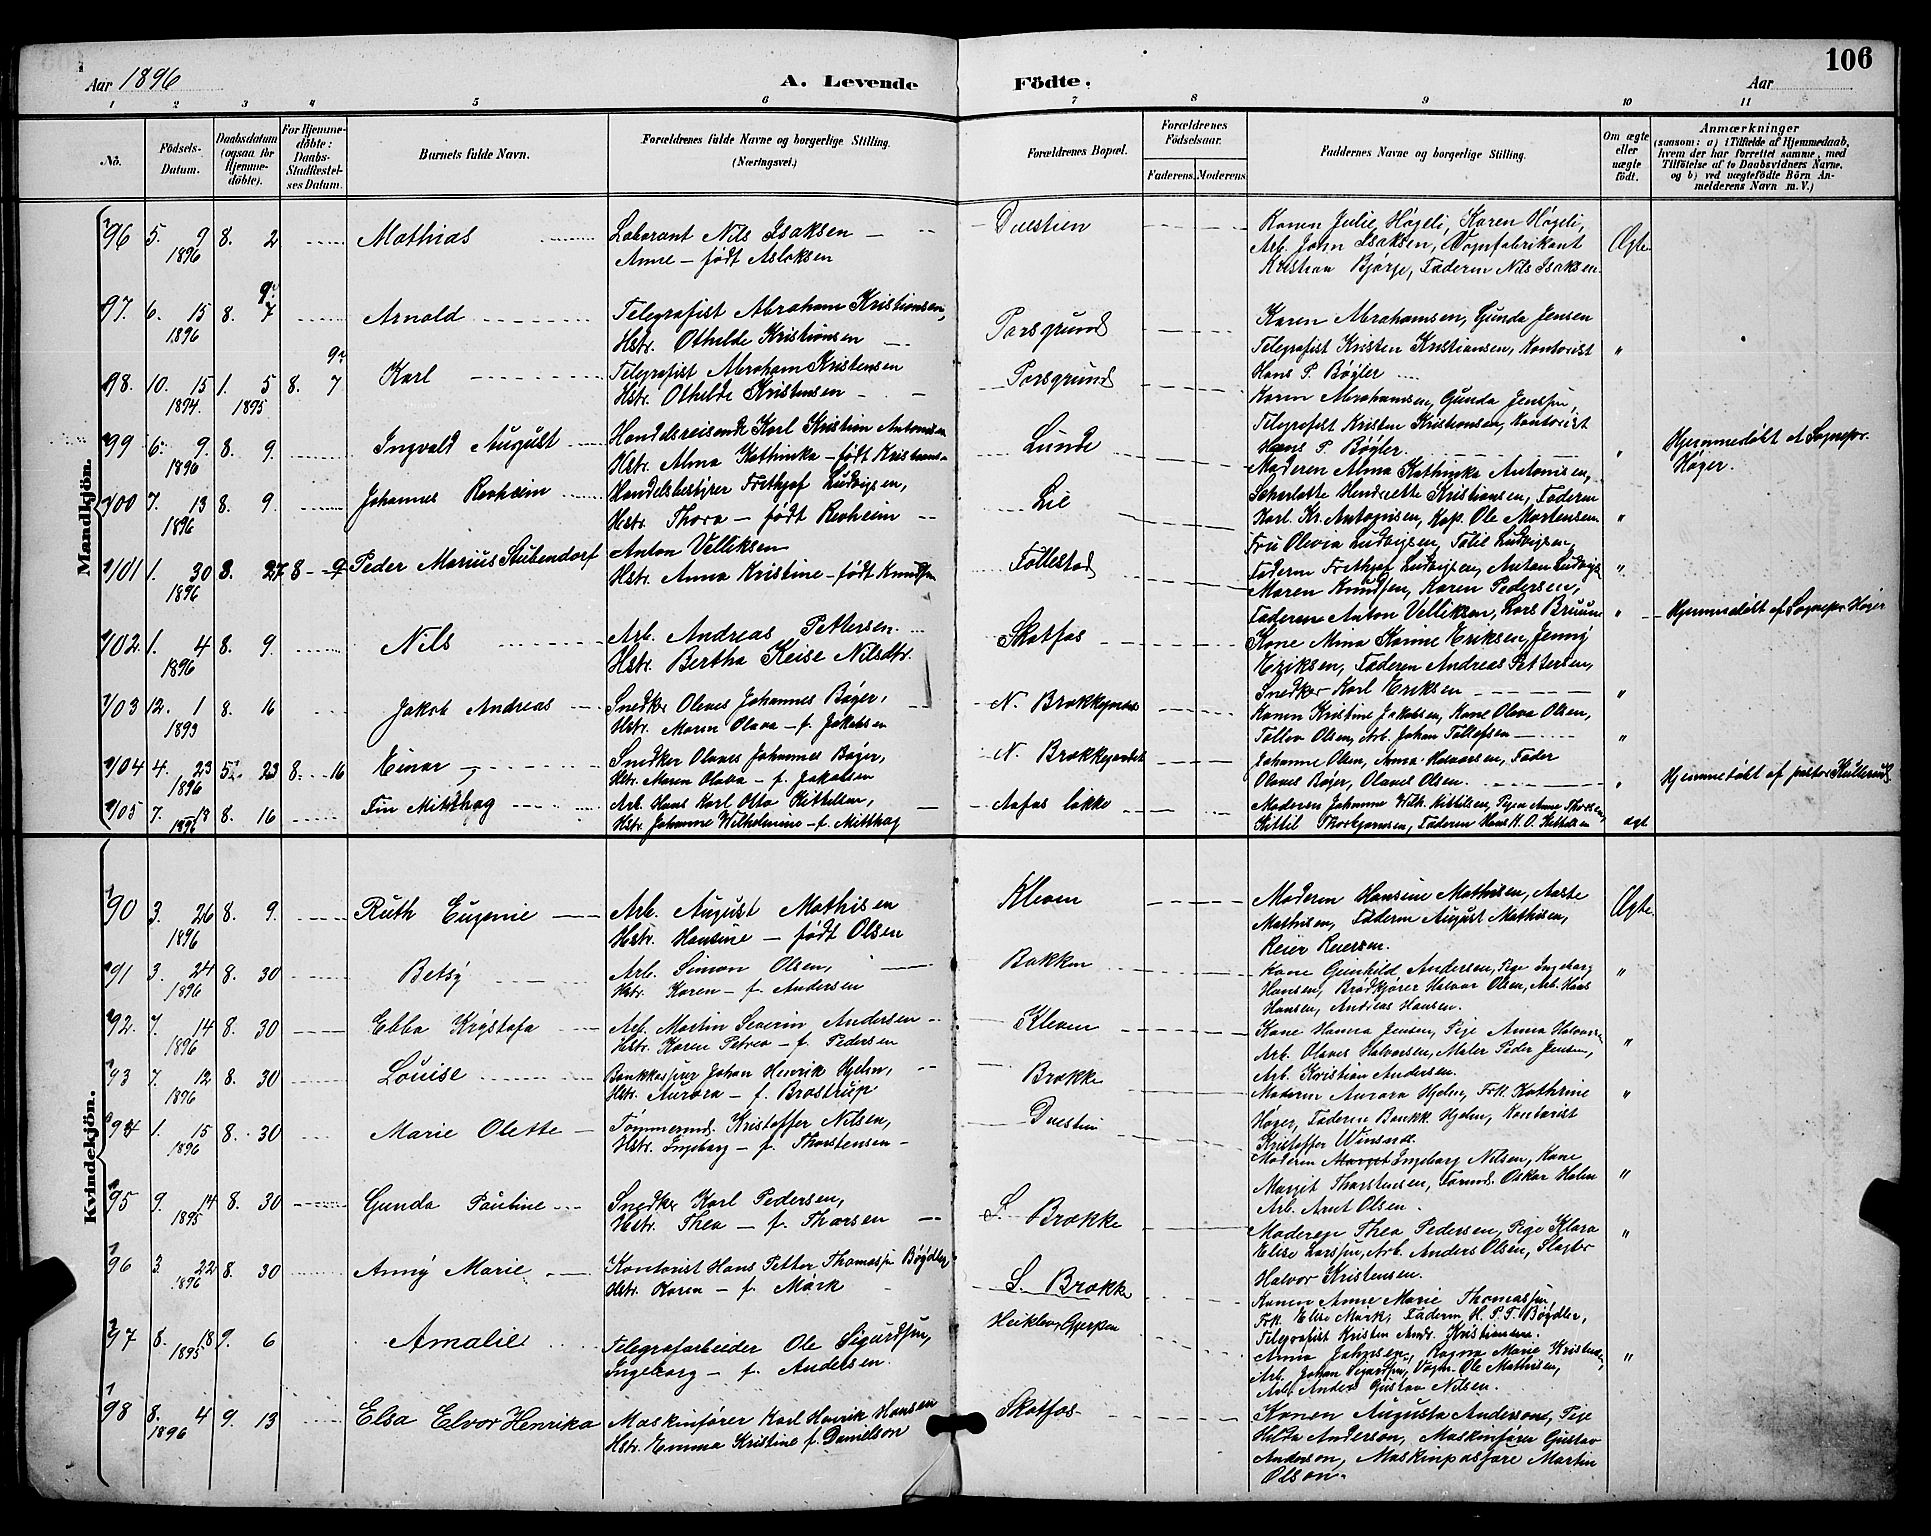 106
Aar 1896 A. Levende Födte. Aar
1 2 3 4 5 6 7 8 9 10 11
No.
Födsels-Datum.
Daabsdatum (ogsaa for Hjemmedöbte).
For Hjemmedöbte: Daabs-Stadfæstelses Datum.
Barnets fulde Navn.
Forældrenes fulde Navne og borgerlige Stilling. (Næringsvei.)
Forældrenes Bopæl.
Forældrenes Födselsaar.
Faderens. Moderens.
Faddernes Navne og borgerlige Stilling.
Om ægte eller uægte födt.
Anmærkninger
(saasom: a) i Tilfælde af Hjemmedaab, hvem der har forrettet samme, med Tilföielse af to Daabsvidners Navne, og b) ved uægtefödte Börn Anmelderens Navn m. V.)
Mandkjön.
96 5. 9 1896 8. 2 Mathias
Laborant Nils Isaksen
Anne – født Aslaksen
Duestien
Konen Julie Høgeli, Karen Høgeli,
Arb. John Isaksen, Vognfabrikant
Kristian Bjørge, Faderen Nils Isaksen.
Ægte
97. 6. 15 1896 8. 9 7 Arnold
Telegrafist Abraham Kristiansen,
Hstr. Othilde Kristiansen
Porsgrund
Karen Abrahamsen, Gunda Jensen
Telegrafist Kristen Kristiansen, Kontorist
Hans P. Bøgler
"
98. 10. 15 1894. 1. 5 1895 8. 9 7 Karl
Telegrafist Abraham Kristensen
Hstr. Othilde Kristensen
Porsgrund
Karen Abrahamsen, Gunda Jensen,
Telegrafist Kristen Kristiansen, Kontorist
Hans P. Bøgler.
"
99 6. 9 1896 8. 9. Ingvald August
Handelsreisende Karl Kristian Antonisen
Hstr. Alma Kathinka – født Kristians-
Lunde
Moderen Alma Kathinka Antonisen,
Scharlotte Hendriette Kristiansen, Faderen
Karl Kr. Antonisen, Kap. Ole Mortensen
"
Hjemmedøbt af Sognepr. Høyer.
100 7. 13 1896 8. 9. Johannes Revheim
Handelsbestyrer Frethjof Ludvigsen,
Hstr. Thora – født Revheim
Lie
Fru Olevia Ludvigsen, Tolie Ludvigsen,
Faderen Frethjof Ludvigsen, Anton Ludvigs
"
101 1. 30 1896 3. 27 8 9 Peder Marius Stubendorf
Anton Velliksen
Hstr. Anna Kristine – født Knudsen
Follestad
Maren Knudsen, Karen Pedersen,
Faderen Anton Velliksen, Lars Bruun
"
Hjemmedøbt af Sognepr. Høyer
102. 1. 4 1896 8. 9. Nils
Arb. Andreas Pettersen
Hstr. Bertha Keise Nilsdtr.
Skotfos
Kone Mina Karine Eriksen, Jenny
Eriksen, Faderen Andreas Pettersen,
Snedker Karl Eriksen
"
103 12. 1 1893 8. 16 Jakob Andreas
Snedker Olaves Johannes Bøyer,
Hstr. Maren Olava – f. Jakobsen
N. Brækkejordet
Konen Kristine Jakobsen, Kone Olava Olsen,
Tollev Olsen, Arb. Johan Tollefsen
"
104 4. 23 1896 5. 23 8. 16 Einar
Snedker Olaves Johannes Bøyer,
Hstr. Maren Olava – f. Jakobsen
N. Brækkejordet
Johanne Olsen, Anna Halvorsen, Fader
Olaves Bøyer, Olaves Olsen.
"
Hjemmedøbt af pastor Kullerud
105 7. 18 1896 8. 16 Fin Mitthag
Arb. Hans Karl Otto Kittelsen,
Hstr. Johanne Wilhelmine – f. Mitthag
Aafos løkke
Moderen Johanne Wilh. Kittilsen, Pigen Anne Thorsen,
Kittil Thorbjørnsen, Faderen Hans K. O. Kittelsen
ægt
Kvindekjön.
90 3. 26 1896 8. 9. Ruth Eugenie
Arb. August Mathisen
Hstr. Hansine – født Olsen
Kleven
Moderen Hansine Mathisen, Aaste
Mathisen, Faderen August Mathisen,
Reier Reiersen.
Ægte.
91 3. 24 1896 8. 30 Betsy
Arb. Simon Olsen,
Hstr. Karen – f. Andersen
Bakken
Kone Gunhild Andersen, Pige Ingeborg
Hansen, Brødkjører Halvor Olsen, Arb. Hans
Hansen, Andreas Hansen.
"
92. 7. 14 1896 8. 30 Ebba Krystofa
Arb. Martin Severin Andersen
Hstr. Karen Petrea – f. Pedersen
Kleven
Kone Hanna Jensen, Pige Anna Halvorsen
Arb. Olaves Halvorsen, Maler Peder Jensen,
Arb. Kristian Andersen.
"
93 7. 12 1896 8. 30 Louise
Bankkasserer Johan Henrik Hjelm,
Hstr. Aurora – f. Brostrup
Brække
Moderen Aurora Hjelm, Frk. Kathrine
Høyer, Faderen Bankk. Hjelm, Kontorist
Kristoffer Winsnes
"
94 1. 15 1896 8. 30 Marie Olette
Tømmermd. Kristoffer Nilsen,
Hstr. Ingeborg – f. Thorstensen
Duestien
Moderen Margit Ingeborg Nilsen, Kone
Margit Thorstensen, Formd. Oskar Holm
Arb. Arnt Olsen.
"
95 9. 14 1895 8. 30 Gunda Pauline
Snedker Karl Pedersen,
Hstr. Thea – f. Thorsen
L. Brække
Moderen Thea Pedersen, Pige Klara
Elise Larssen, Arb. Anders Olsen, Slagter
Halvor Kristensen.
"
96 3. 22 1896 8. 30 Anny Marie
Kontorist Hans Petter Thomassen Bøydler
Hstr. Karen – f. Mark
L. Brække
Konen Anne Marie Thomassen,
Frk. Elise Mark, Faderen H. P. T. Bøydler,
Telegrafist Kristen Andr. Kristiansen.
97 8. 18 1895 9. 6 Amalie
Telegrafarbeider Ole Sigurdsen,
Ingeborg – f. Andersen.
Heiklev, Gjerpen
Anna Johnsen, Ragna Marie Kristensen,
Arb. Johan Sigurdsen, Vogn. Ole Mathisen,
Arb. Anders Gustav Nilsen.
"
98 8. 4 1896 9. 13 Elsa Elvor Henrika
Maskinfører Karl Henrik Hansen
Hstr. Emma Kristine f. Danielson
Skotfos
Konen Augusta Anderson, Pige
Hilda Anderson, Maskinfører Gustav
Anderson, Maskinpasser Martin
Olson.